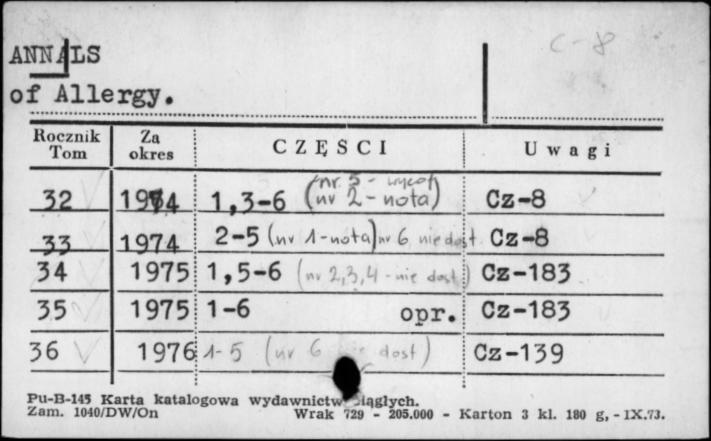 C-8
ANNALS
of Allergy.
Rocznik Tom Za okres CZĘŚCI Uwagi
nr. 5 - wycof
32 1974 1,3-6 (nr 2 - nota) Cz-8
33 1974 2-5 (nr 1-nota) nr 6 nie dost. Cz-8
34 1975 1,5-6 (nr 2,3,4 - nie dost) Cz-183
35 1975 1-6 opr. Cz-183
36 1976 1-5 (nr 6 dost) Cz-139
Pu-B-145 Karta katalogowa wydawnictw ciągłych.
Zam. 1040/DW/On Wrak 729 - 205.000 - Karton 3 kl. 180 g, - IX.73.